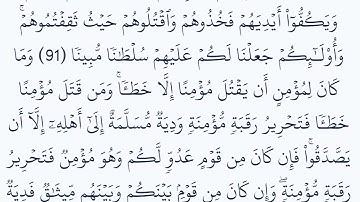 وَيَكُفُّوٓاْ أَيۡدِيَهُمۡ فَخُذُوهُمۡ وَٱقۡتُلُوهُمۡ حَيۡثُ ثَقِفۡتُمُوهُمۡۚ
وَأُوْلَـٰٓئِكُمۡ جَعَلۡنَا لَكُمۡ عَلَيۡهِمۡ سُلۡطَـٰنࣰا مُّبِينࣰا (91) وَمَا
كَانَ لِمُؤۡمِنٍ أَن يَقۡتُلَ مُؤۡمِنًا إِلَّا خَطَـࣰٔاۚ وَمَن قَتَلَ مُؤۡمِنًا
خَطَـࣰٔا فَتَحۡرِيرُ رَقَبَةࣲ مُّؤۡمِنَةࣲ وَدِيَةࣱ مُّسَلَّمَةٌ إِلَىٰٓ أَهۡلِهِۦٓ إِلَّآ أَن
يَصَّدَّقُواْۚ فَإِن كَانَ مِن قَوۡمٍ عَدُوࣲّ لَّكُمۡ وَهُوَ مُؤۡمِنࣱ فَتَحۡرِيرُ
رَقَبَةࣲ مُّؤۡمِنَةࣲۖ وَإِن كَانَ مِن قَوۡمِۭ بَيۡنَكُمۡ وَبَيۡنَهُم مِّيثَـٰقࣱ فَدِيَةࣱ